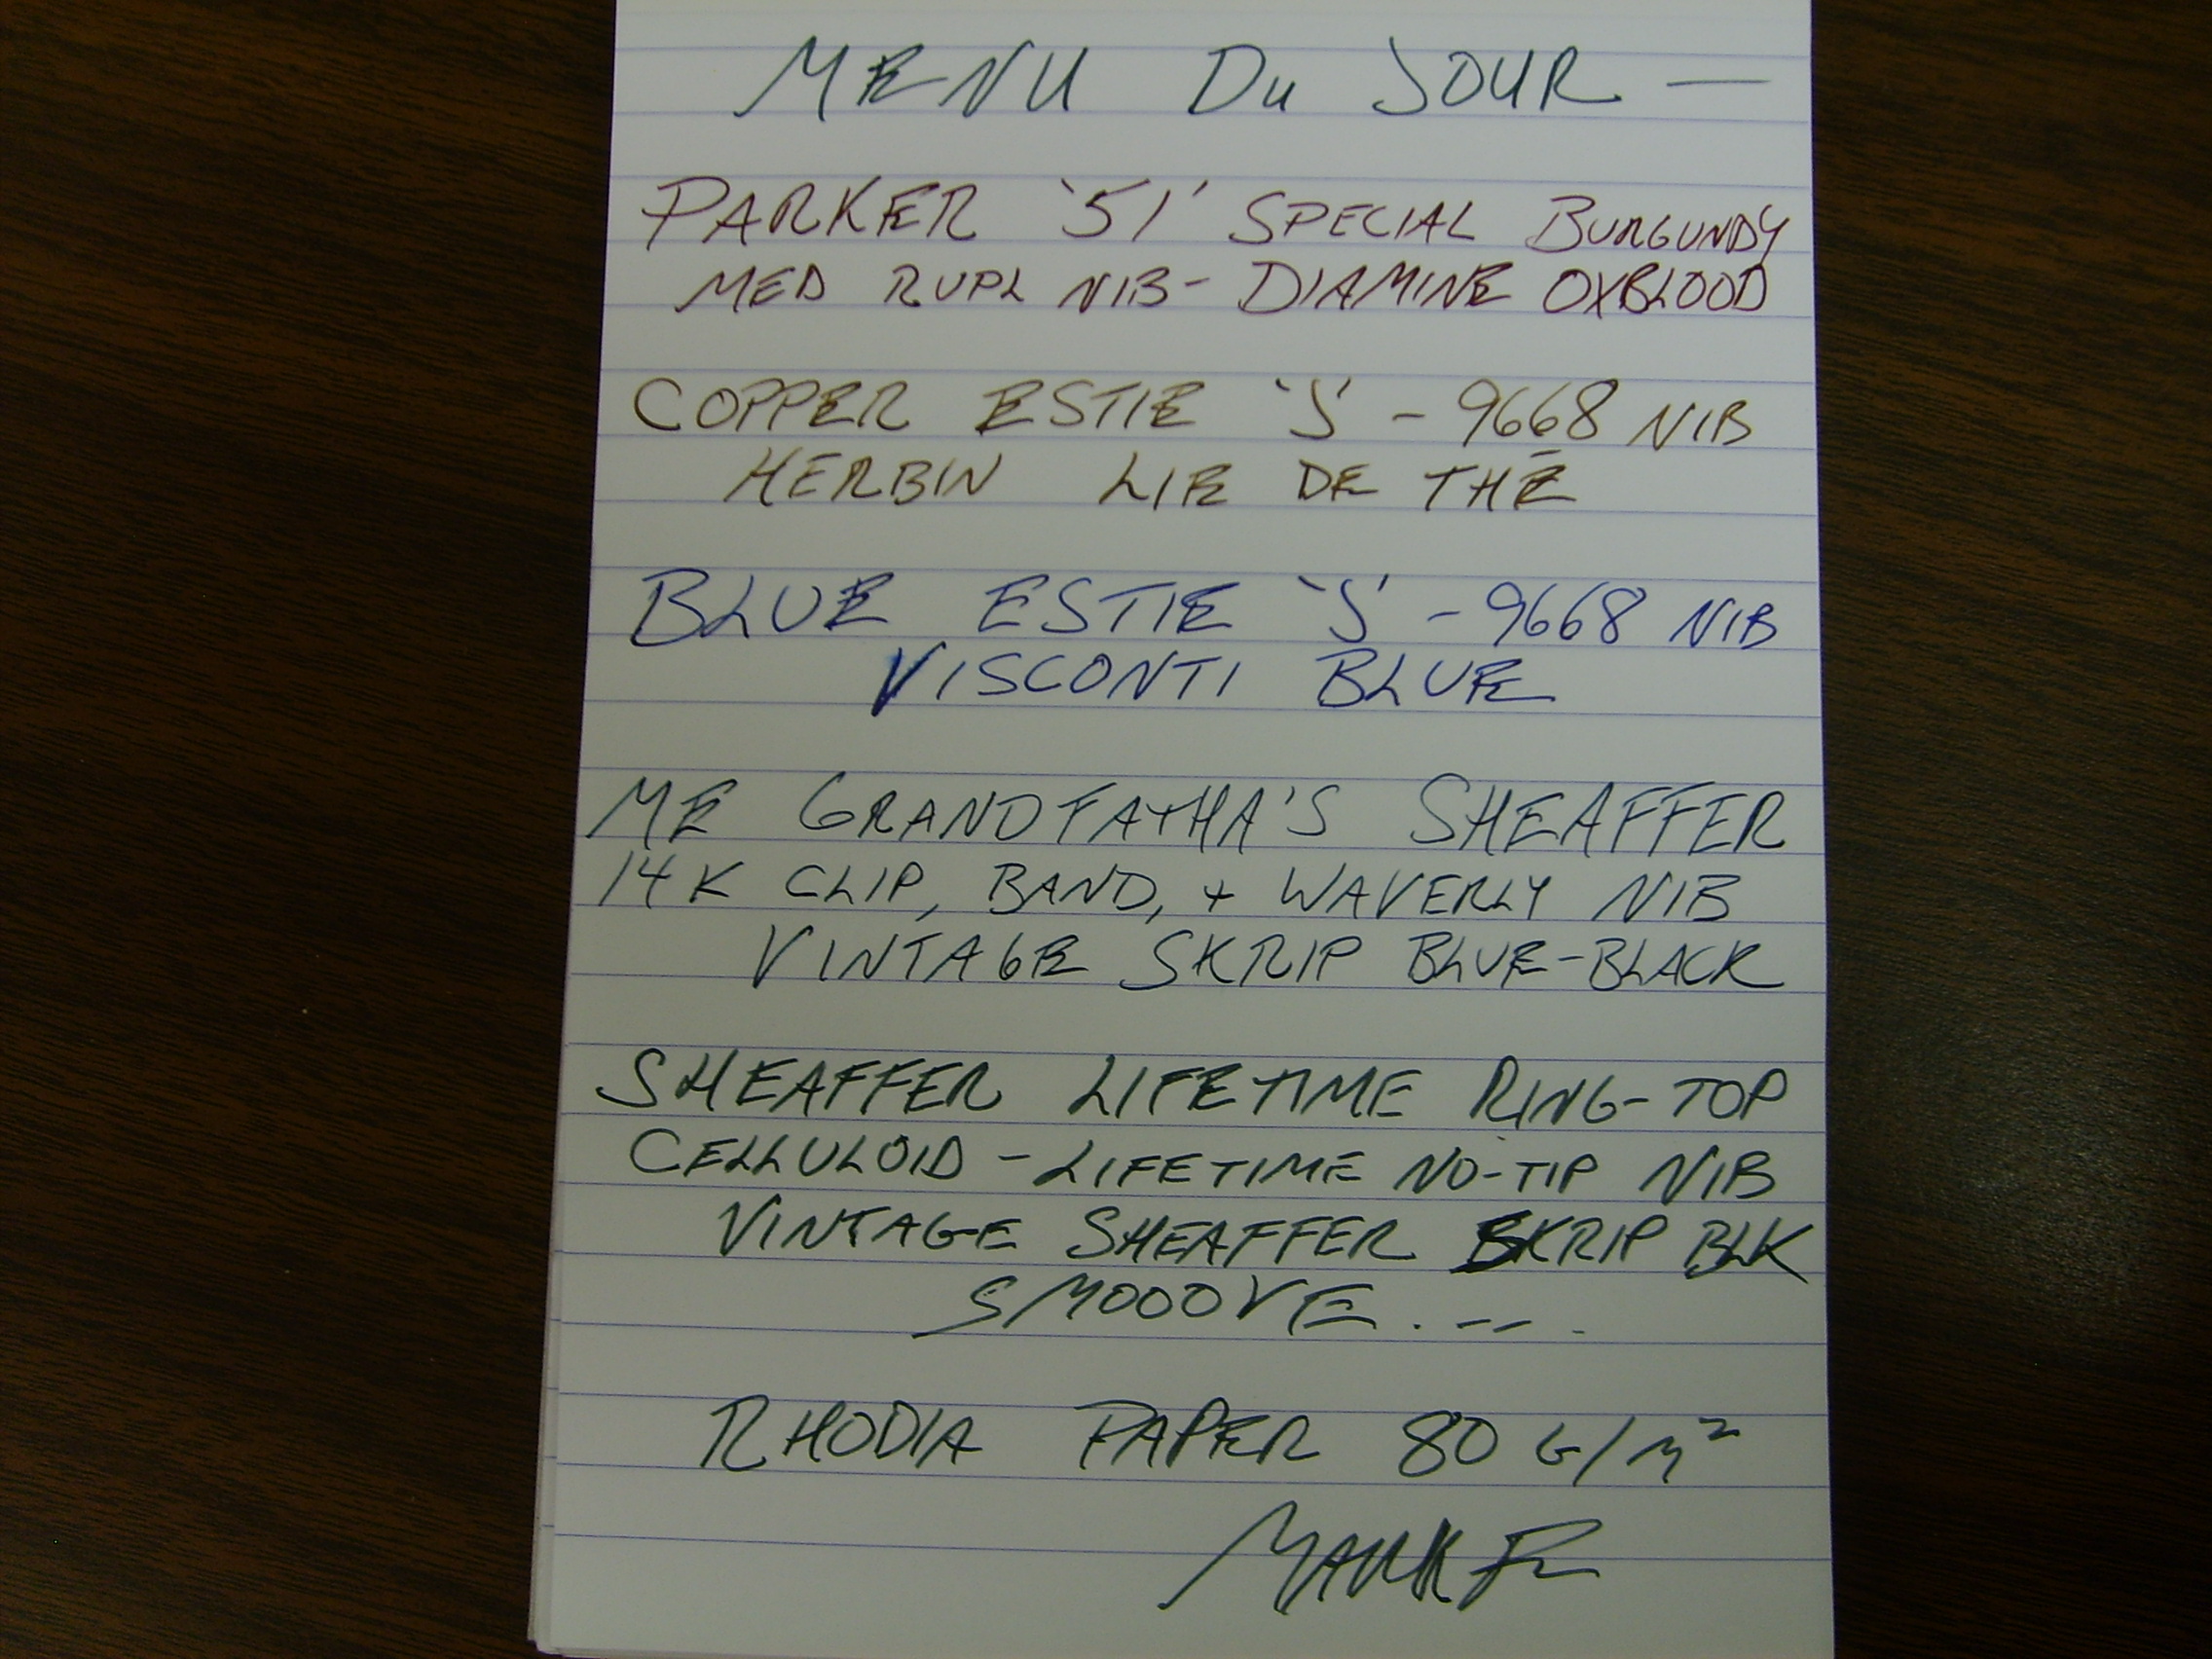 MENU DU JOUR —
PARKER '51' SPECIAL BURGUNDY
MED RUPL NIB- DIAMINE OXBLOOD
COPPER ESTIE 'J' - 9668 NIB
HERBIN LIE DE THÉ
BLUE ESTIE 'J' - 9668 NIB
VISCONTI BLUE
ME GRANDFATHA'S SHEAFFER
14K CLIP, BAND, + WAVERLY NIB
VINTAGE SKRIP BLUE-BLACK
SHEAFFER LIFETIME RING-TOP
CELLULOID - LIFETIME NO-TIP NIB
VINTAGE SHEAFFER SKRIP BLK
SMOOOVE. -- .
RHODIA PAPER 80 G/M²
MARK